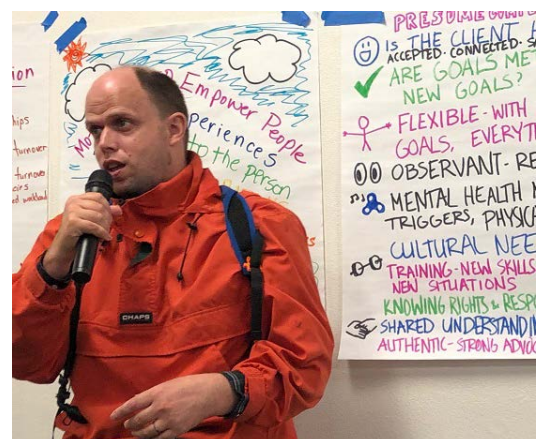 ion
ships
turnover
turnover
Empower People
periences
to the person
CHAPS
PRESUME
IS THE CLIENT
ACCEPTED. CONNECTED.
ARE GOALS MET
NEW GOALS?
FLEXIBLE - WITH
GOALS, EVERYT
OBSERVANT - RE
MENTAL HEALTH
TRIGGERS, PHYSICA
CULTURAL NEE
TRAINING - NEW SKILLS
NEW SITUATIONS
KNOWING RIGHTS & RESPO
SHARED UNDERSTANDIN
AUTHENTIC - STRONG ADVOC